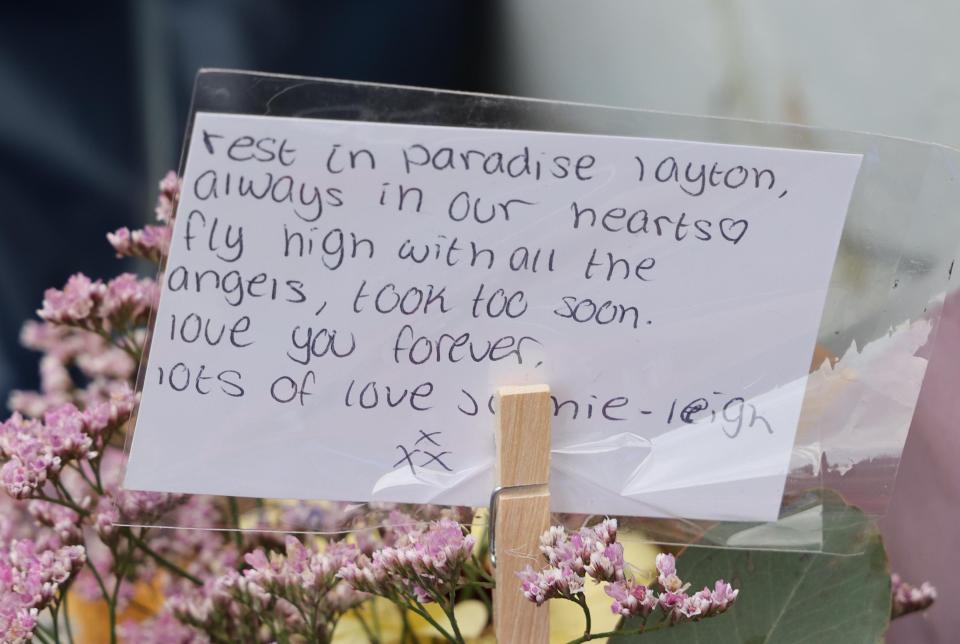 rest in paradise layton,
always in our hearts♡
fly high with all the
angels, took too soon.
love you forever,
lots of love
x
xx